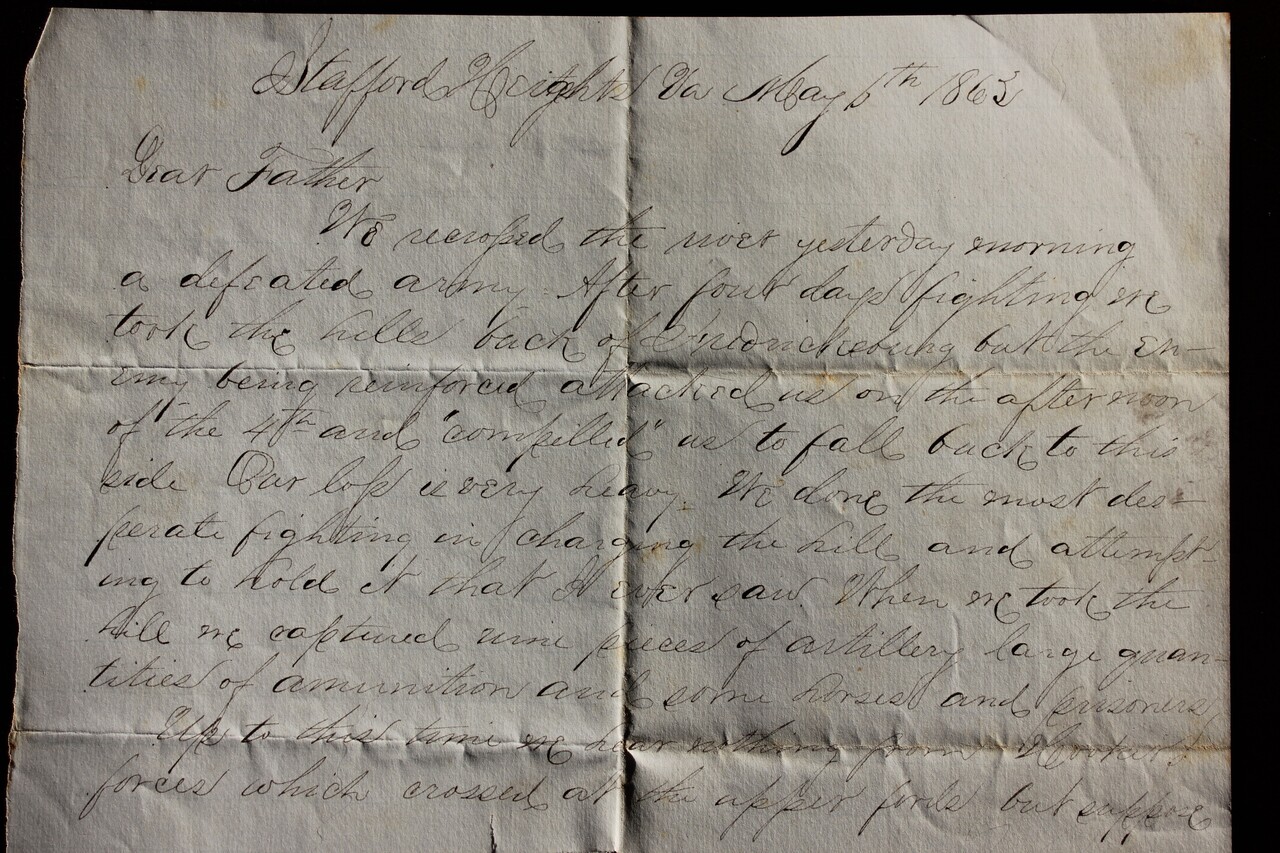 Stafford Heights Va May 6th 1863
Dear Father
We recrossed the river yesterday morning
a defeated army. After four days fighting we
took the hills back of Fredricksburg but the en-
emy being reinforced attacked us on the afternoon
of the 4th and "compelled" us to fall back to this
side Our loss is very heavy. We done the most des-
perate fighting in charging the hill and attempt-
ing to hold it that I ever saw. When we took the
hill we captured nine pieces of artillery large quan-
tities of amunition and some horses and prisoners
Up to this time we hear nothing from Hooker's
forces which crossed at the upper fords but suppose